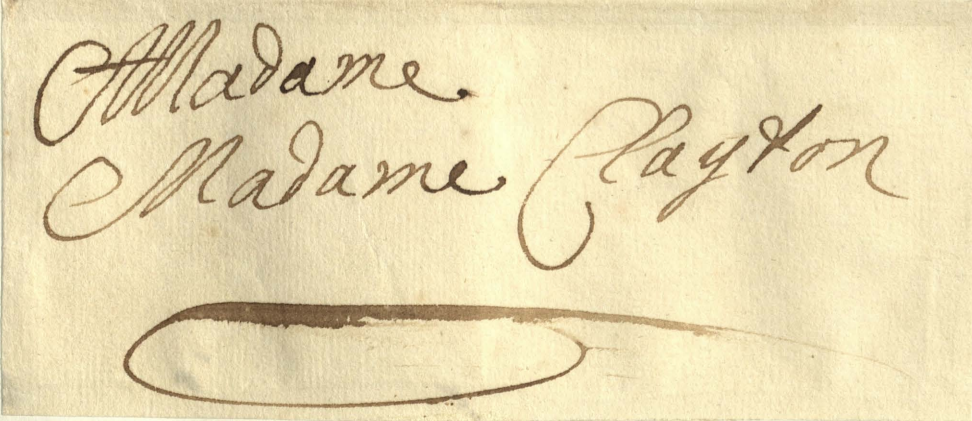 Madame
Madame Clayton